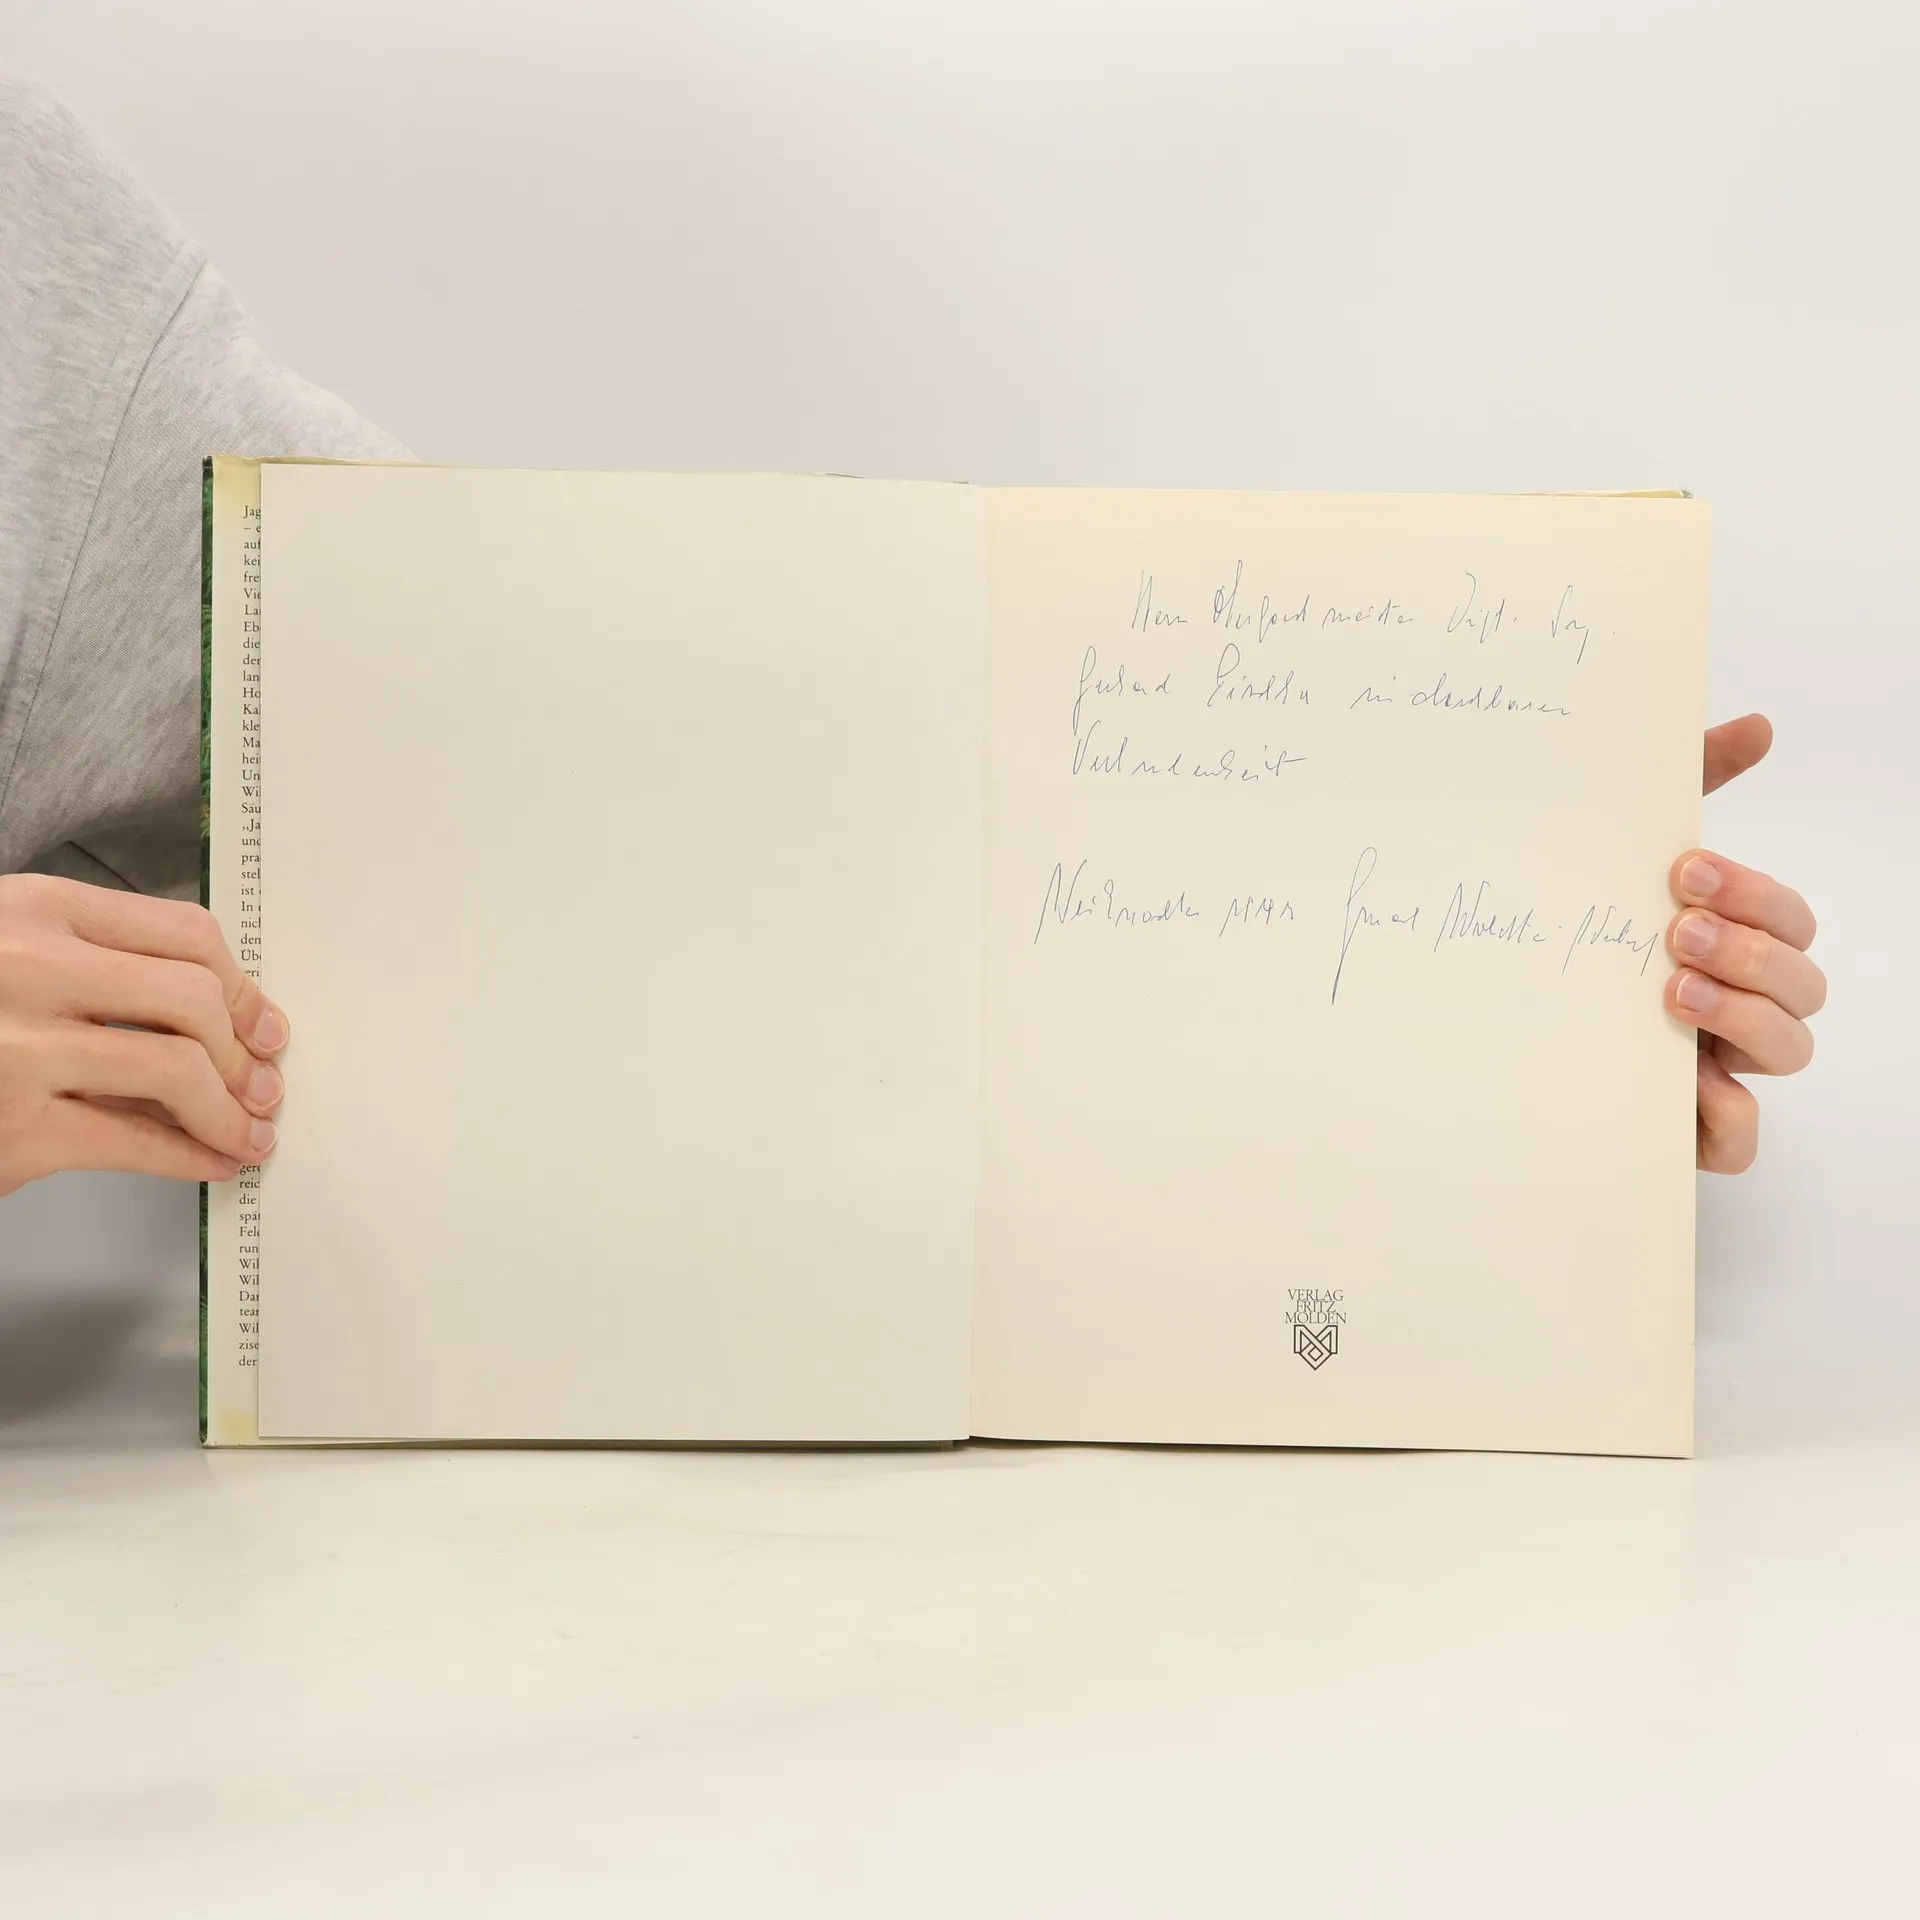 Jag
– e
auf
kei
fre
Vie
La
Eb
die
der
lan
Ho
Ka
kle
Ma
hei
Un
Wi
Säu
„Ja
und
pra
stel
ist
In
nich
den
Übe
eri
gere
reic
die
spät
Feld
run
Wil
Wil
Dar
tear
Wil
zise
der
Herrn Oberforstmeister Dipl. Ing.
Gerhard in dankbarer
Verbundenheit
Weihnachten
VERLAG
FRITZ
MOLDEN